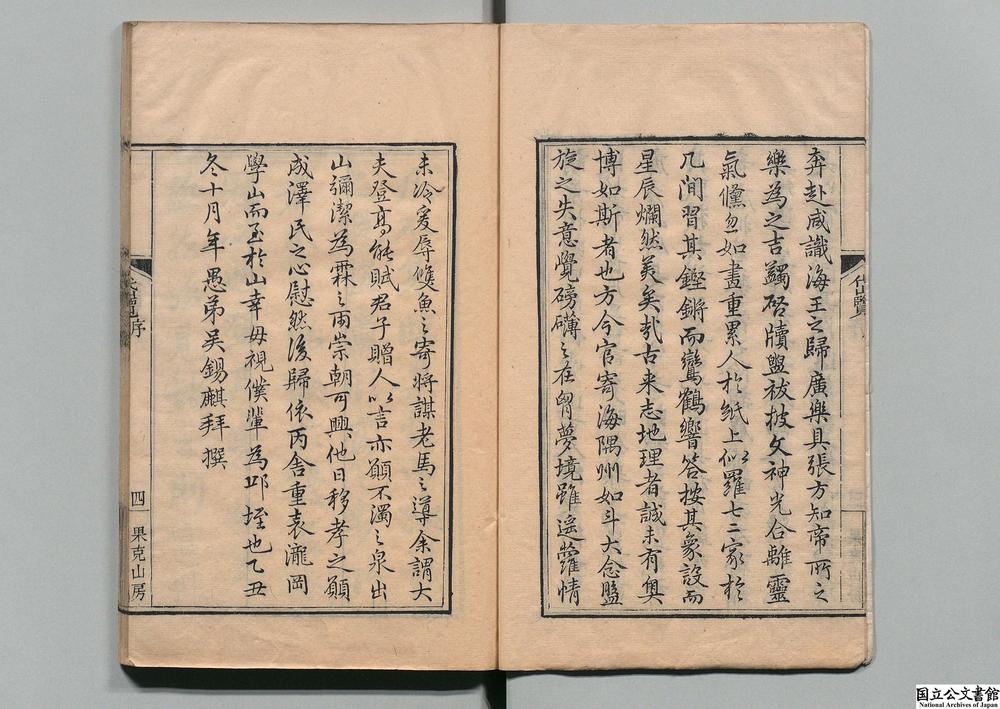 奔赴咸識海王之歸廣樂具張方知帝所之
樂為之吉蠲啓牘盥祓披文神光合離靈
氣儻忽如畫重累人於紙上似羅七二家於
几間習其鏗鏘而鸞鶴響答按其象設而
星辰爛然美矣哉古来志地理者誠未有奥
博如斯者也方今官寄海隅州如斗大念盤
旋之失意覺磅礴之在胷夢境雖遥蘿情
岱覽
未冷爰辱雙魚之寄將謀老馬之導余謂大
夫登高能賦君子贈人以言亦願不濁之泉出
山彌潔為霖之雨崇朝可興他日移孝之願
成澤民之心慰然後歸依丙舍重表瀧岡
學山而至於山幸毋視僕輩為邱垤也乙丑
冬十月年愚弟吴錫麒拜撰
序
四
果克山房
国立公文書館
National Archives of Japan